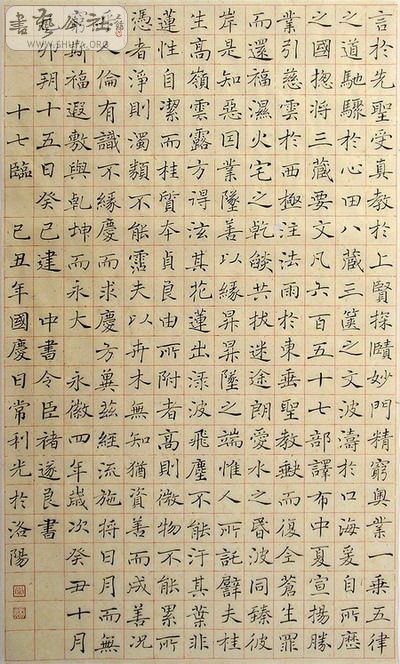 言於先聖受真教於上賢探賾妙門精窮奧業一乘五律
之道馳驟於心田八藏三篋之文波濤於口海爰自所歷
之國揔將三藏要文凡六百五十七部譯布中夏宣揚勝
業引慈雲於西極注法雨於東垂聖教缺而復全蒼生罪
而還福濕火宅之乾燄共拔迷途朗愛水之昏波同臻彼
岸是知惡因業墜善以緣昇昇墜之端惟人所託譬夫桂
生高嶺雲露方得泫其花蓮出淥波飛塵不能汙其葉非
蓮性自潔而桂質本貞良由所附者高則微物不能累所
憑者淨則濁類不能霑夫以卉木無知猶資善而成善況
倫有識不緣慶而求慶方冀茲經流施將日月而無
福遐敷與乾坤而永大 永徽四年歲次癸丑十月
卯朔十五日癸巳建 中書令臣褚遂良書
十七臨 己丑年國慶日常利光於洛陽
書藝公社
www.shufa.org